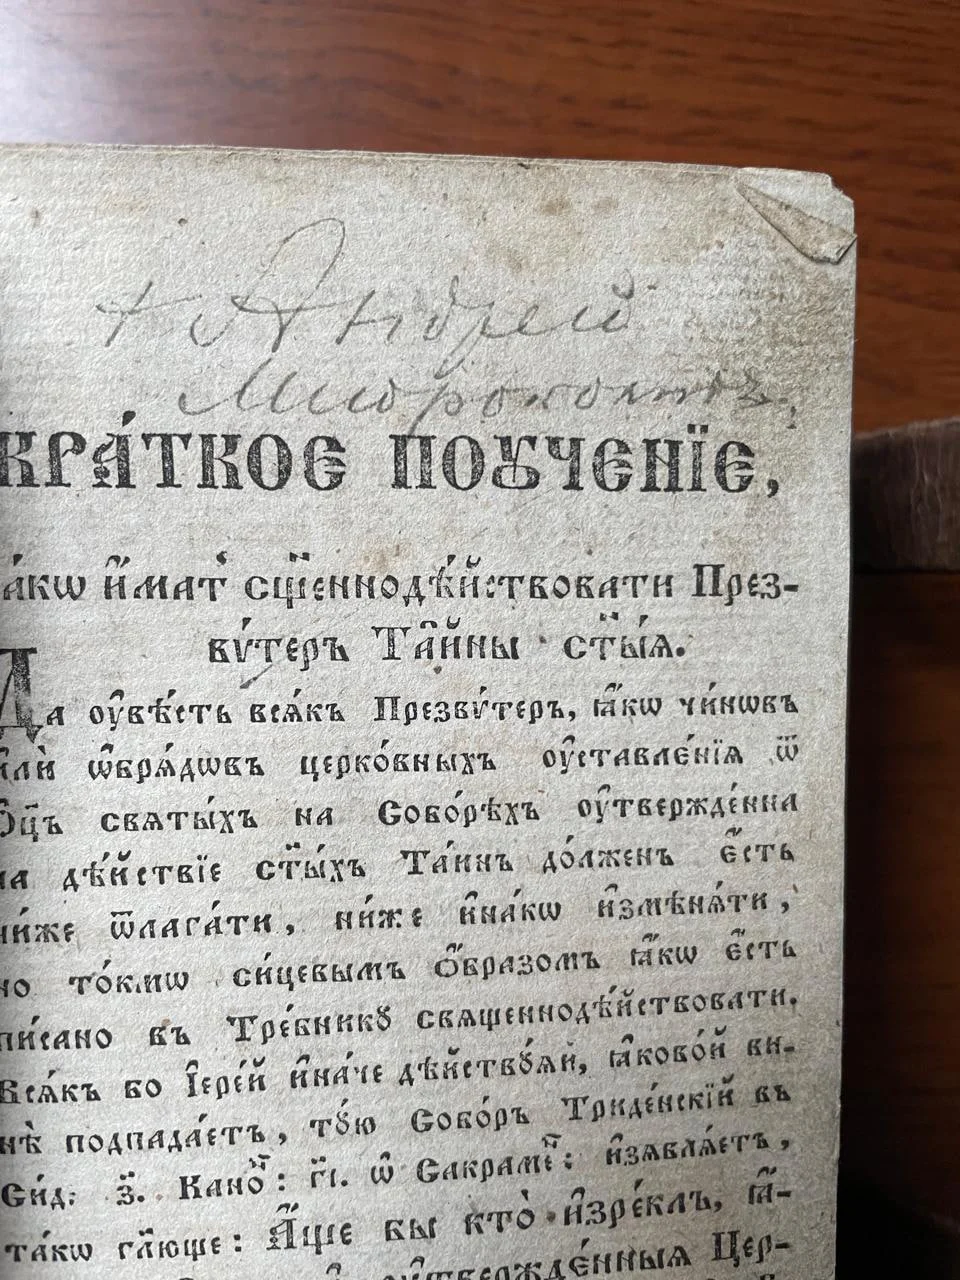 + Андрей
КРА́ТКОЕ ПОꙋЧЕНЇЕ,
а́кѡ и҆́мат̾ сщ҃еннодѣ́йствовати През-
вѵ́теръ Та̑йны ст҃ы́ѧ.
Да ᲂу҆вѣ́сть всѧ́къ Презвѵ́теръ, ꙗ҆́кѡ чи́нѡвъ
и҆лѝ ѡ҆брѧ́дѡвъ церко́вныхъ ᲂу҆ставле́нїѧ ѿ
Ѻ҆ц҃ъ свѧты́хъ на Собо́рѣхъ ᲂу҆твержде́нна
на дѣ́йствїе ст҃ы́хъ Та́инъ до́лженъ є҆́сть
ни́же ѿлага́ти, ни́же и҆на́кѡ и҆змѣнѧ́ти,
но то́кмѡ си́цевымъ ѻ҆́бразомъ ꙗ҆́кѡ є҆́сть
пи́сано въ Тре́бникꙋ свѧщеннодѣ́йствовати.
Всѧ́къ бо І҆ере́й и҆на́че дѣ́йствꙋѧй, ꙗ҆ково́й ви-
нѣ̀ подпада́етъ, тꙋ́ю Собо́ръ Триде́нскїй въ
Сѣ́д: з҃. Кано҃: г҃і. ѡ҆ Сакраме҃: и҆з̾ѧвлѧ́етъ,
та́кѡ гл҃юще: А҆́ще бы кто̀ и҆зре́клъ, ꙗ҆́-
ᲂу҆твержде́нныѧ Цер-